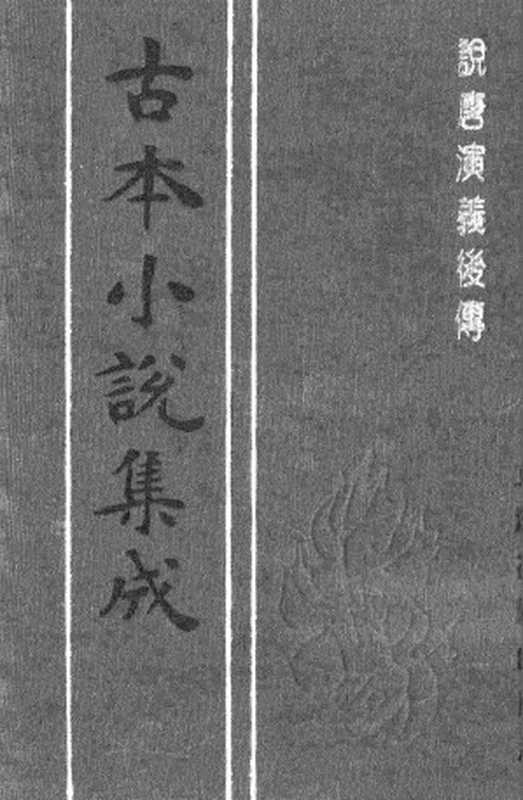 說唐演義後傳
古本小說集成